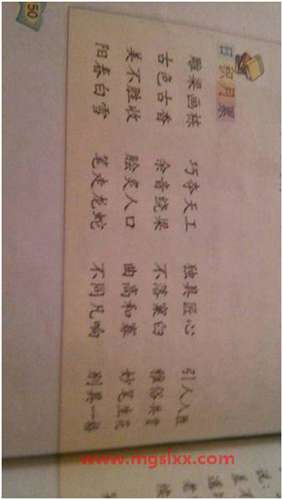 日积月累
雕梁画栋 巧夺天工 独具匠心 引人入胜
古色古香 余音绕梁 不落窠臼 雅俗共赏
美不胜收 脍炙人口 曲高和寡 妙笔生花
阳春白雪 笔走龙蛇 不同凡响 别具一格
50
www.mgslxx.com